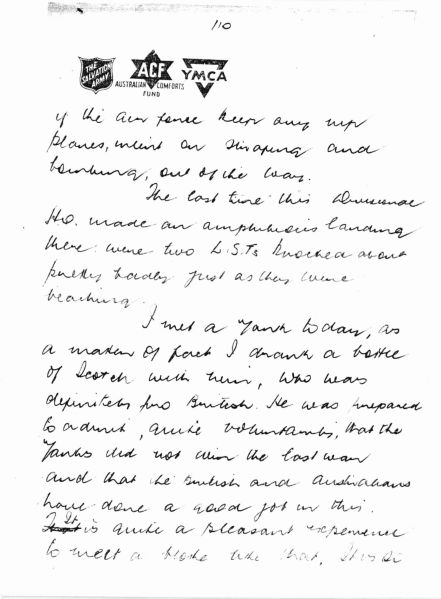 110
THE SALVATION ARMY
ACF
AUSTRALIAN COMFORTS FUND
YMCA
if the Air force keep any nip
planes, intent on straping and
bombing, out of the way.
The last time this Divisional
HQ. made an amphibious landing
there were two L.S.Ts knocked about
pretty badly just as they were
beaching.
I met a Yank today, as
a matter of fact I drank a bottle
of Scotch with him, who was
definitely pro British. He was prepared
to admit, quite voluntarily, that the
Yanks did not win the last war
and that the British and Australians
have done a good job in this.
It is quite a pleasant experience
to meet a bloke like that, It is